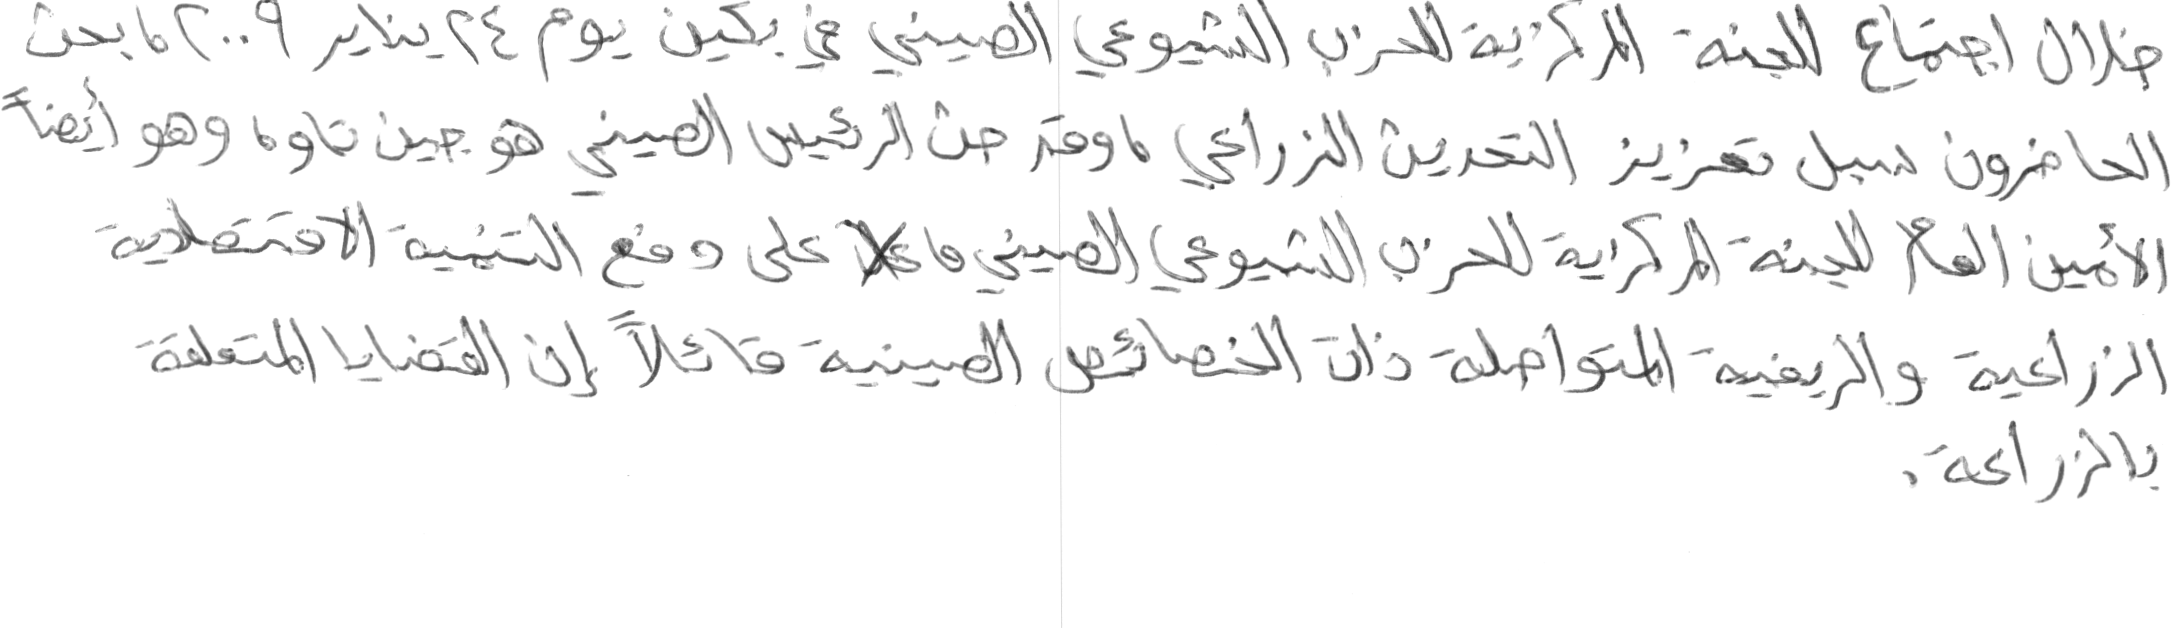 خلال اجتماع للجنة المركزية للحزب الشيوعي الصيني في بكين يوم ٢٤ يناير ٢٠٠٩، بحث
الحاضرون سبل تعزيز التحديث الزراعي، وقد حث الرئيس الصيني هو جين تاو، وهو أيضاً
الأمين العام للجنة المركزية للحزب الشيوعي الصيني، على دفع التنمية الاقتصادية
الزراعية والريفية المتواصلة ذات الخصائص الصينية قائلاً إن القضايا المتعلقة
بالزراعة.